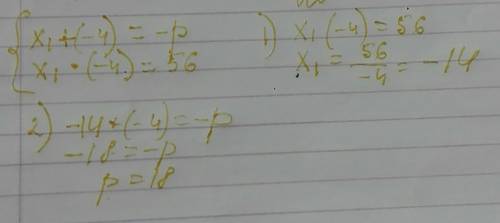 { x₁ + (-4) = -p
x₁ · (-4) = 56
1) x₁ (-4) = 56
x₁ = 56/-4 = -14
2) -14 + (-4) = -p
-18 = -p
p = 18